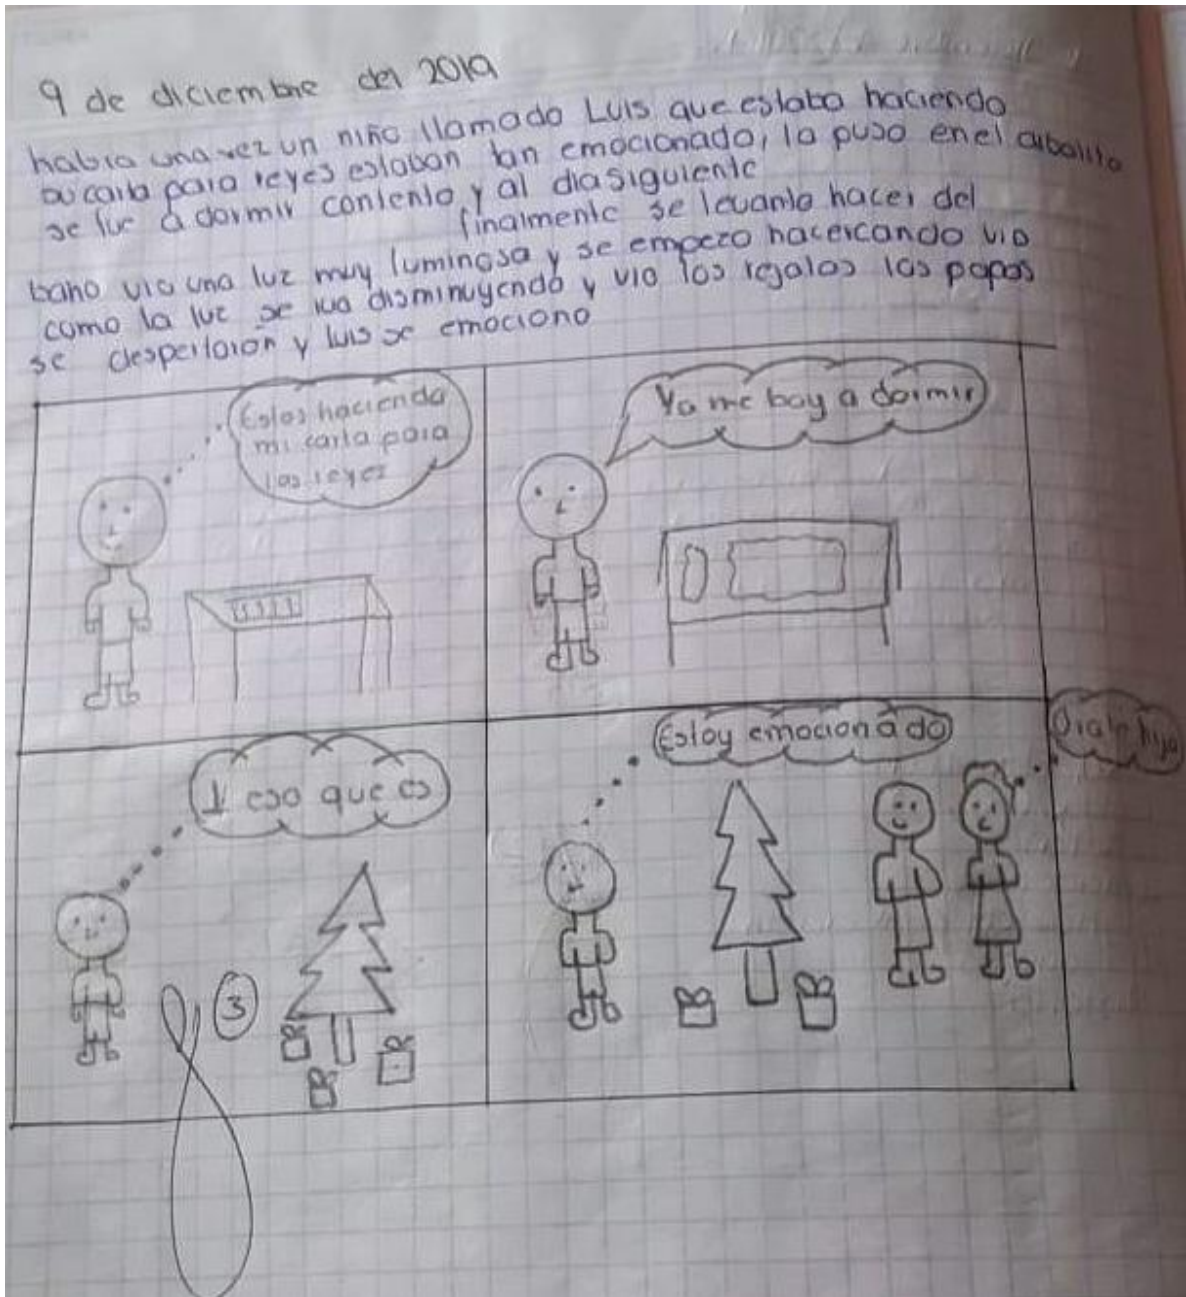 9 de diciembre del 2019
habia una vez un niño llamado Luis que estaba haciendo
su carta para reyes estaban tan emocionado, la puso en el arbolito
se fue a dormir contento y al dia siguiente
finalmente se levanto hacer del
baño vio una luz muy luminosa y se empezo hacercando vio
como la luz se iva disminuyendo y vio los regalos los papas
se despertaron y luis se emociono
Estos haciendo
mi carta para
los reyez
Ya me boy a dormir
Y eso que es
Estoy emocionado
Orale hijo
3